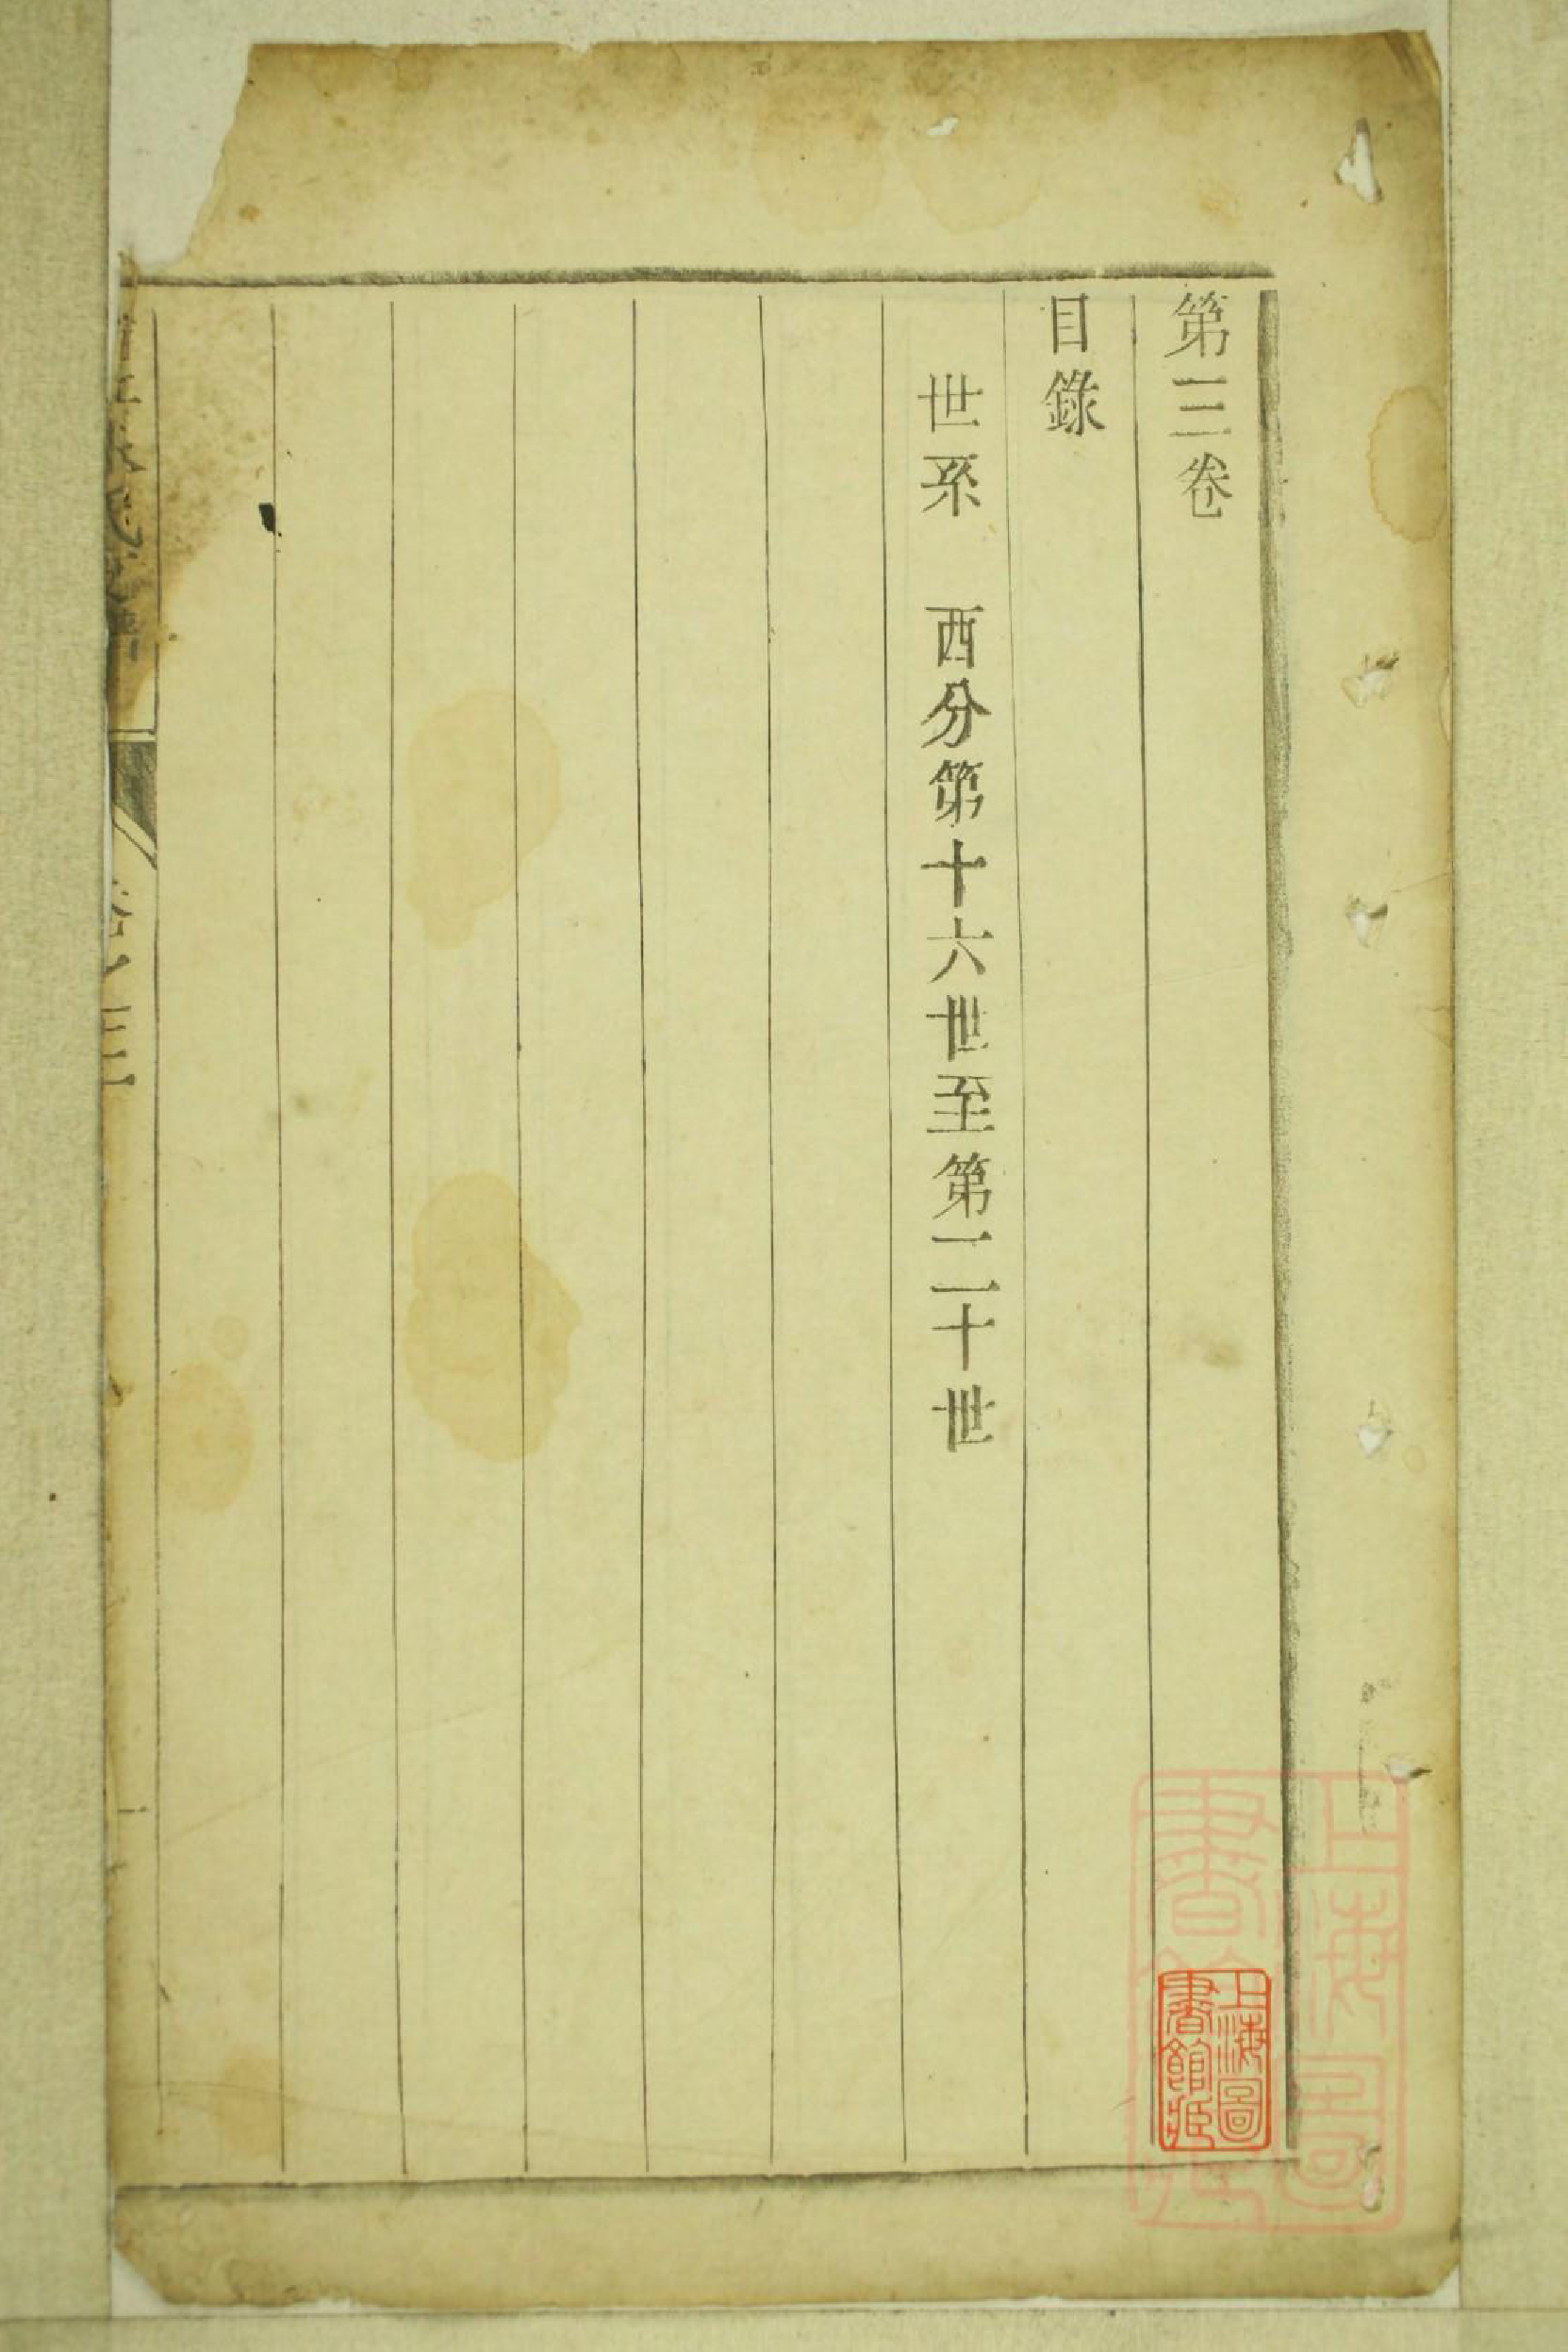 第三卷
目錄
世系　西分第十六世至第二十世
卷三
上海圖書館藏
上海圖書館藏